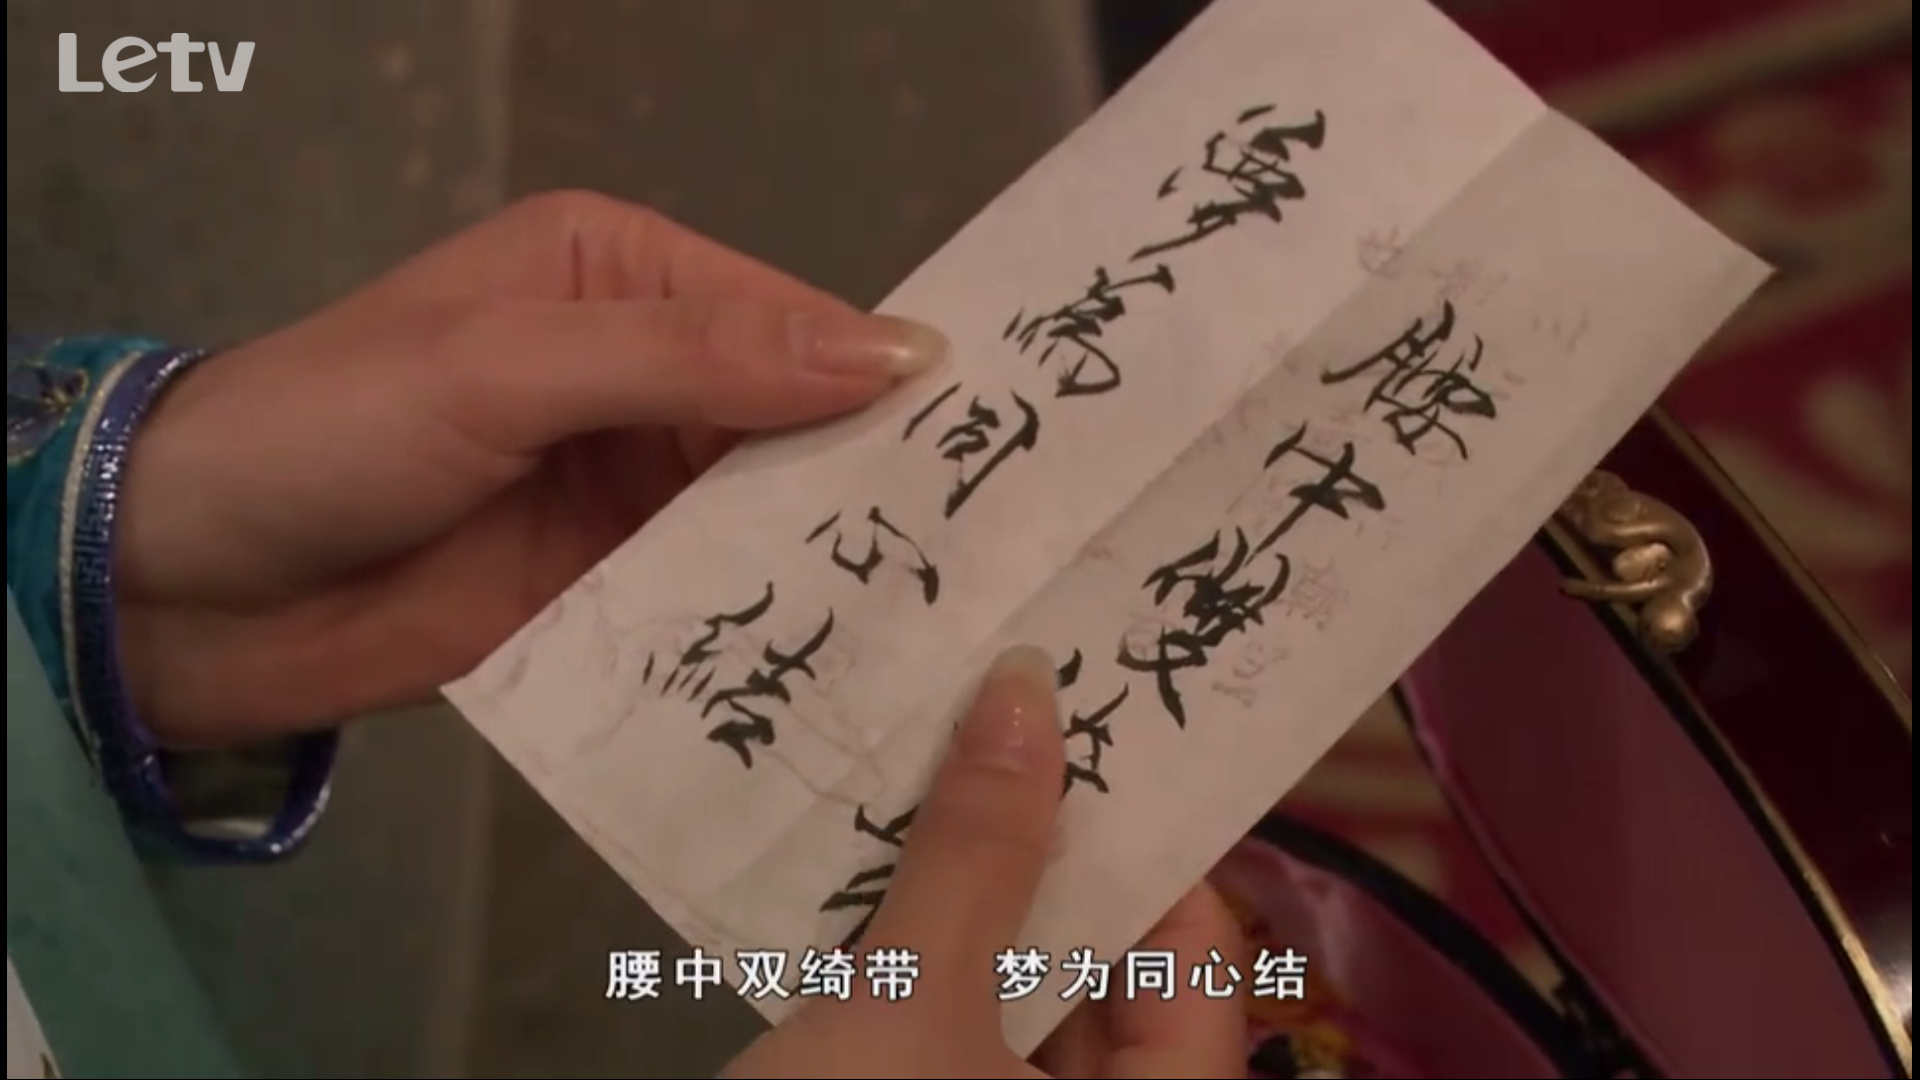 Letv
腰中雙綺
夢為同心結
腰中双绮带 梦为同心结